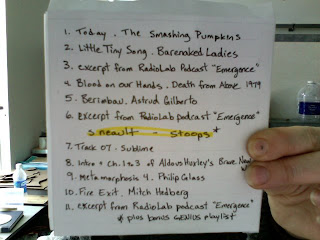 1. Today. The Smashing Pumpkins
2. Little Tiny Song. Barenaked Ladies
3. excerpt from RadioLab Podcast "Emergence"
4. Blood on our Hands. Death from Above 1979
5. Berimbau. Astrud Gilberto
6. Excerpt from RadioLab Podcast "Emergence"
- Stoops *
7. Track 07. Sublime
8. Intro + Ch. 1 & 3 of Aldous Huxley's Brave New
9. metamorphosis 4. Philip Glass
10. Fire Exit. Mitch Hedberg
11. excerpt from RadioLab podcast "Emergence"
* plus bonus GENIUS playlist